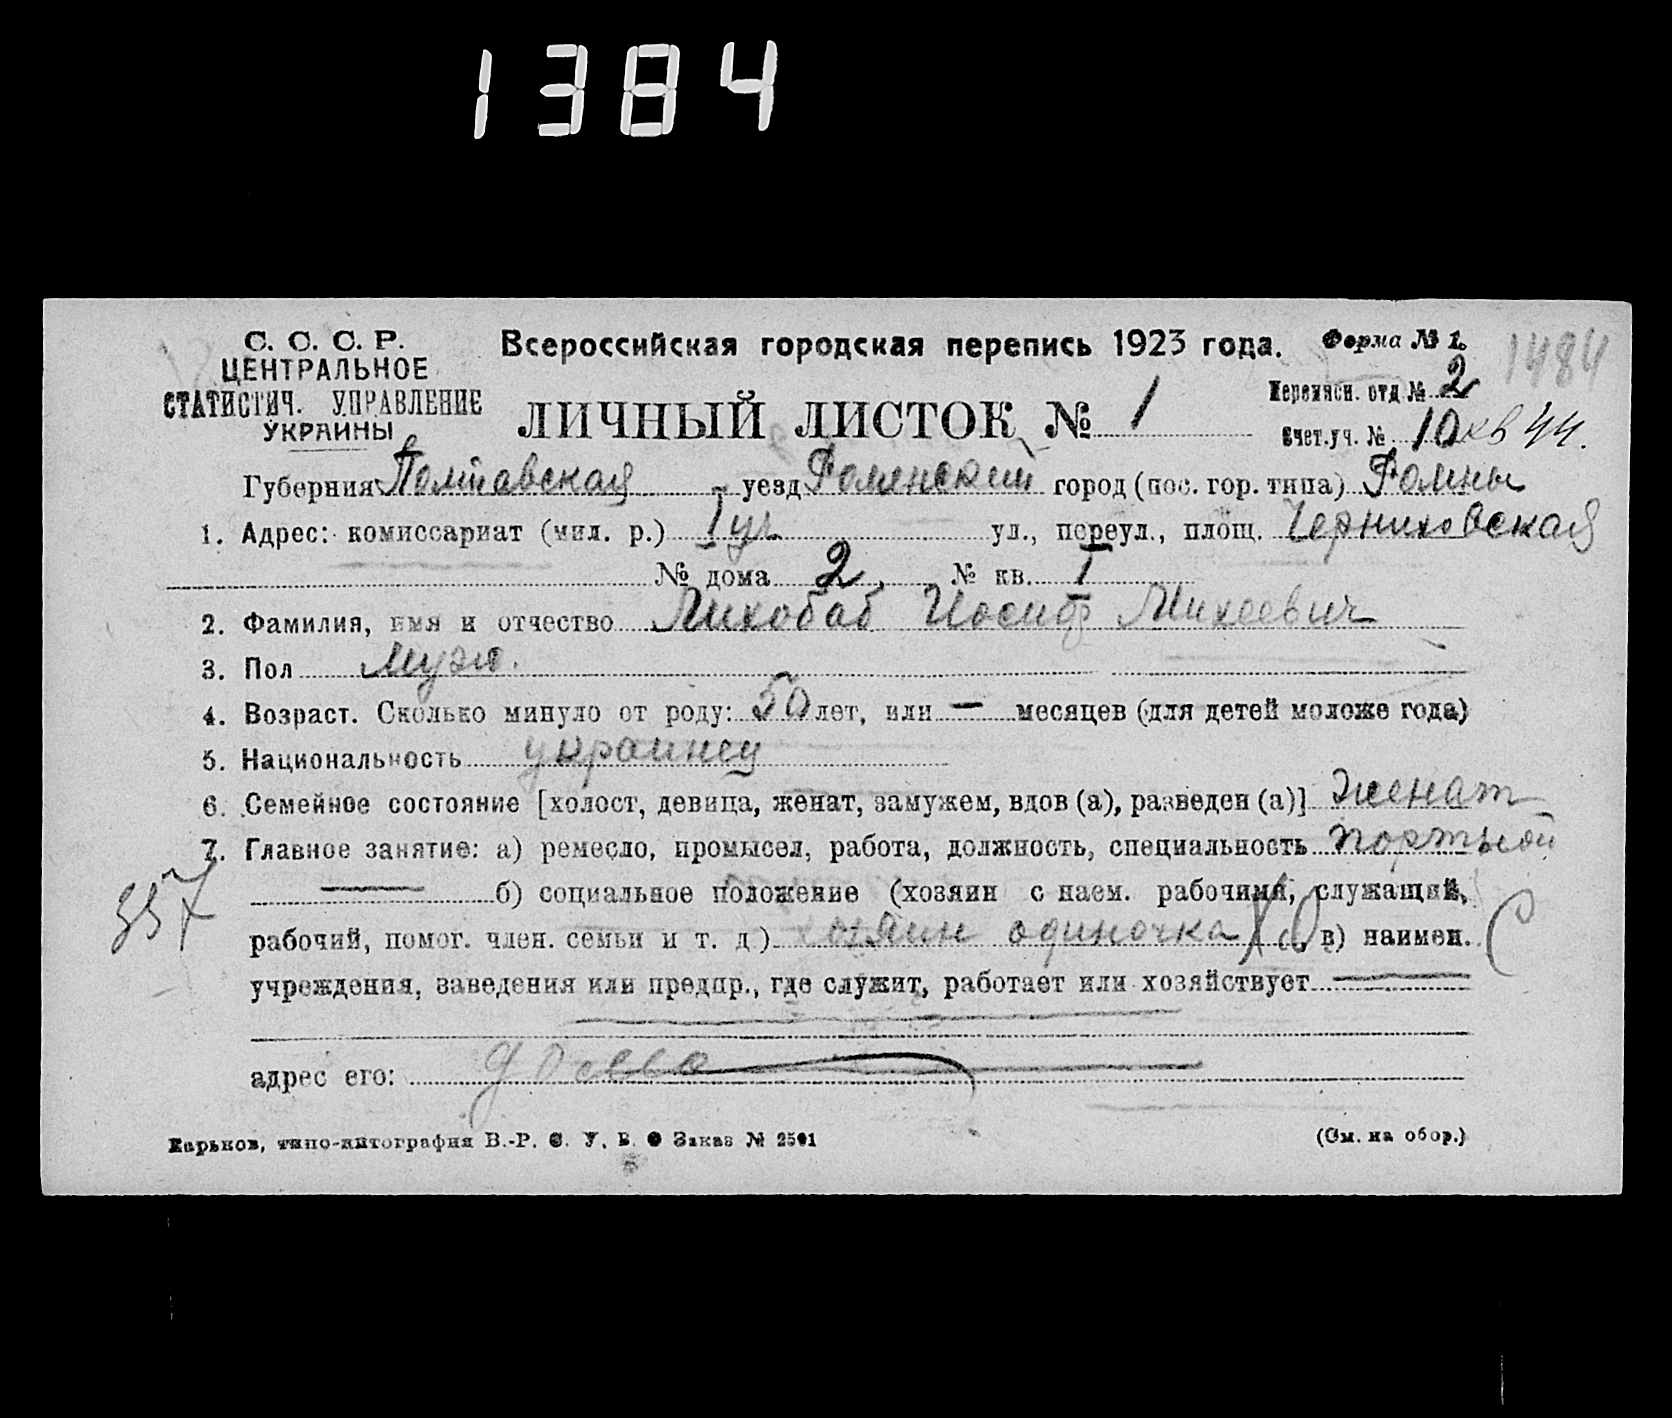 1384
С. С. С. Р.
ЦЕНТРАЛЬНОЕ
СТАТИСТИЧ. УПРАВЛЕНИЕ
УКРАИНЫ
Всероссийская городская перепись 1923 года.
ЛИЧНЫЙ ЛИСТОК № 1
Форма № 1.
1484
Переписн. отд № 2
Счет.уч. № 10 кв 44.
Губерния Полтавская уезд Роменский город (пос. гор. типа) Ромны
1. Адрес: комиссариат (мил. р.) I уч ул., переул., площ. Черниховская
№ дома 2, № кв. I
2. Фамилия, имя и отчество Лихобаб Иосиф Михеевич
3. Пол Муж.
4. Возраст. Сколько минуло от роду: 50 лет, или — месяцев (для детей моложе года)
5. Национальность украинец
6. Семейное состояние [холост, девица, женат, замужем, вдов (а), разведен (а)] женат
7. Главное занятие: а) ремесло, промысел, работа, должность, специальность портной
357
б) социальное положение (хозяин с наем. рабочими, служащий,
рабочий, помог. член. семьи и т. д.) хозяин одиночка в) наимен.
учреждения, заведения или предпр., где служит, работает или хозяйствует
адрес его:
Харьков, типо-литография В.-Р. С. У. В. О Заказ № 2501
(См. на обор.)